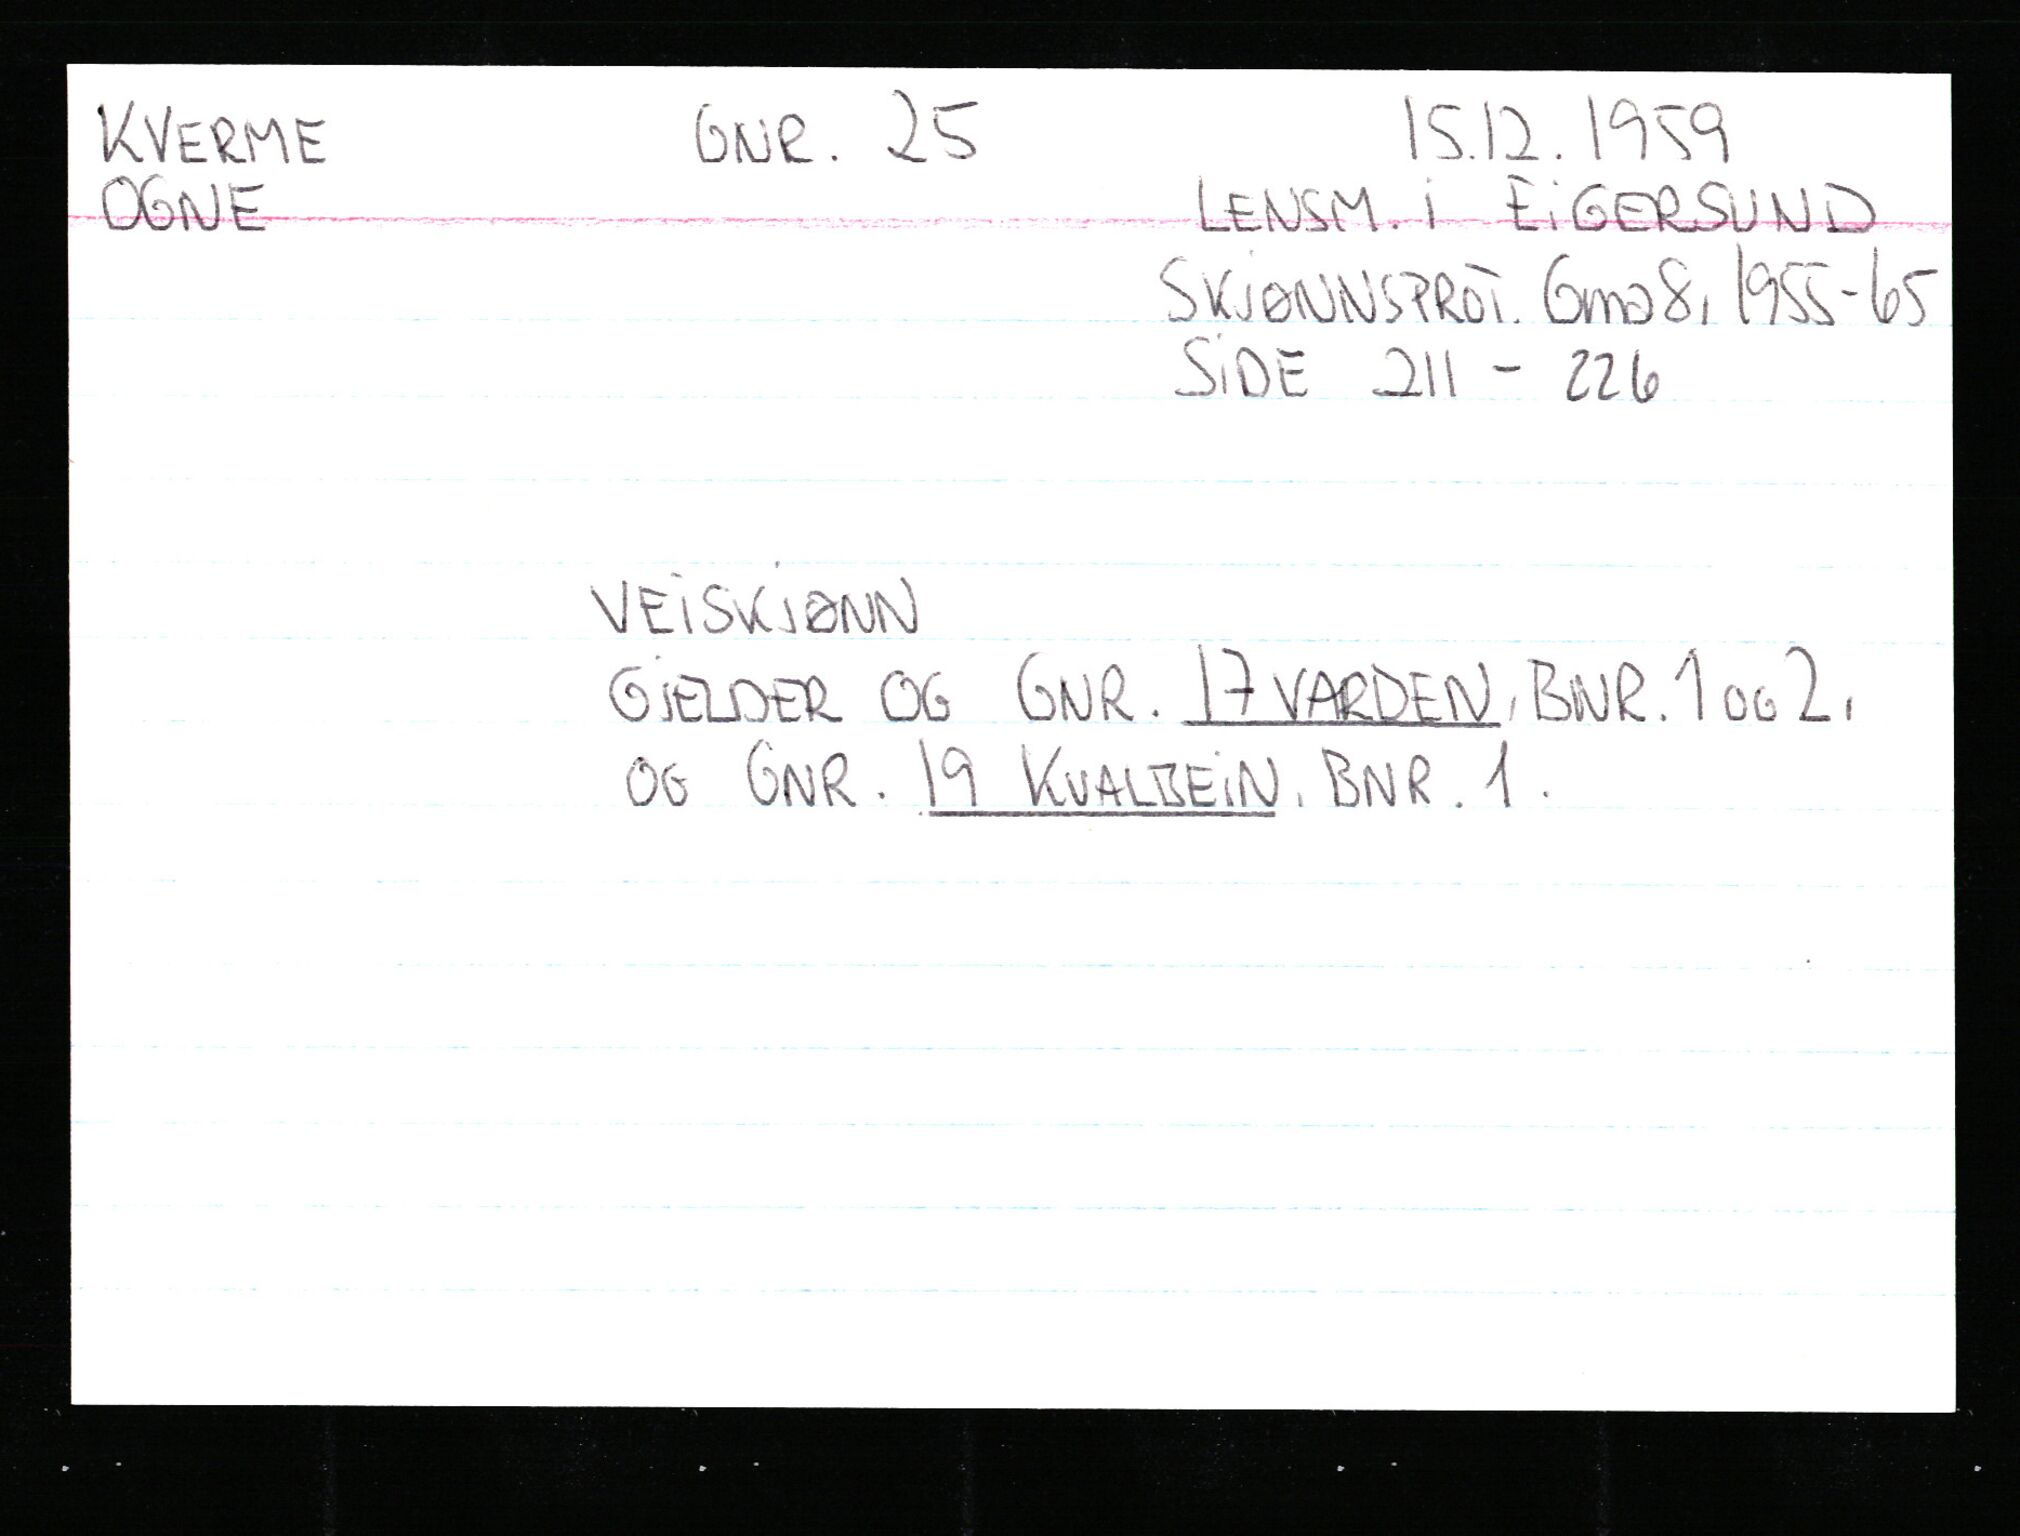 KVERME GNR. 25 15.12.1959
OGNE LENSM. i EiGERSUND
SKJØNNSPROT. Gma8, 1955-65
SiDE 211 - 226
VEiSKJØNN
GJELDER OG GNR. 17 VARDEN, BNR. 1 OG 2,
OG GNR. 19 KVALBEiN, BNR. 1.